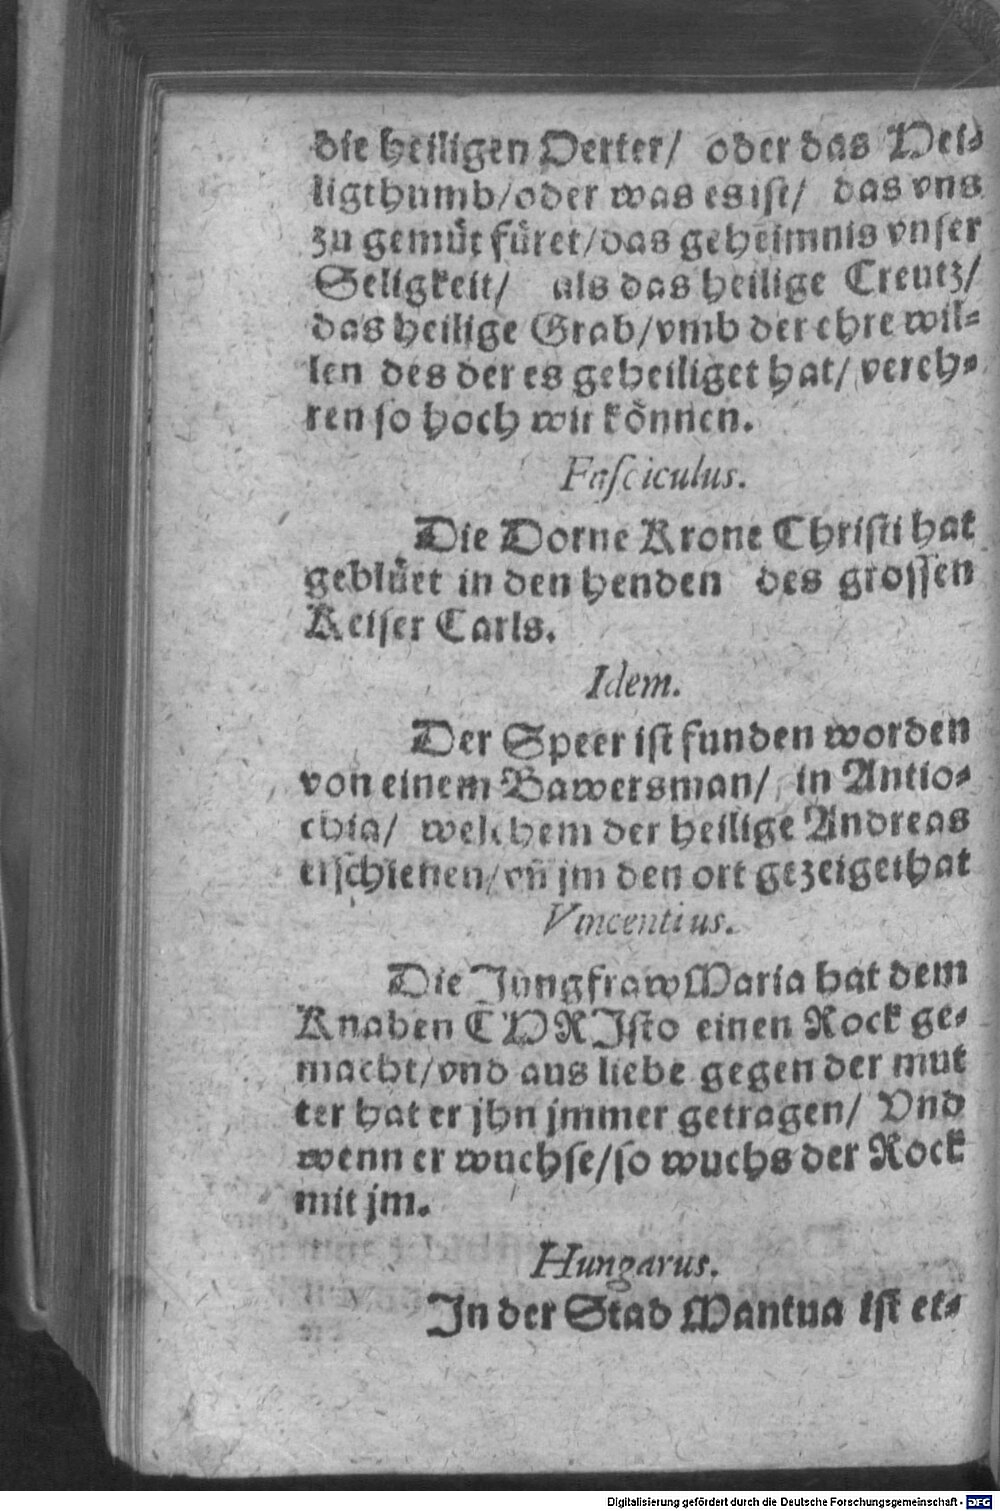 die heiligen Oerter/ oder das Hei-
ligthumb/oder was es ist/ das vns
zu gemüt füret/das geheimnis vnser
Seligkeit/ als das heilige Creutz/
das heilige Grab/vmb der ehre wil-
len des der es geheiliget hat/ vereh-
ren so hoch wir können.
Fasciculus.
Die Dorne Krone Christi hat
geblüet in den henden des grossen
Keiser Carls.
Idem.
Der Speer ist funden worden
von einem Bawersman/ in Antio-
chia/ welchem der heilige Andreas
erschienen/vñ jm den ort gezeiget hat
Vincentius.
Die Jungfraw Maria hat dem
Knaben CHRIsto einen Rock ge-
macht/vnd aus liebe gegen der mut
ter hat er jhn jmmer getragen/ Vnd
wenn er wuchse/so wuchs der Rock
mit jm.
Hungarus.
In der Stad Mantua ist et-
Digitalisierung gefördert durch die Deutsche Forschungsgemeinschaft - DFG